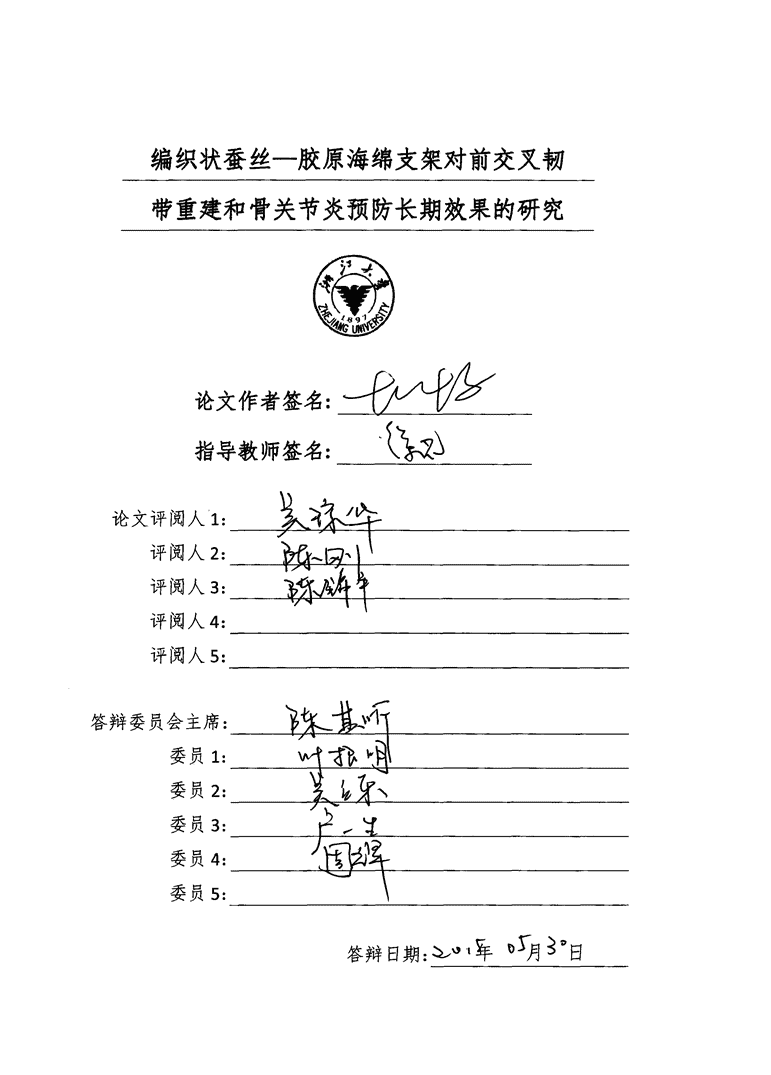 编织状蚕丝—胶原海绵支架对前交叉韧
带重建和骨关节炎预防长期效果的研究
浙江大学
1897
ZHEJIANG UNIVERSITY
论文作者签名:
指导教师签名:
论文评阅人1: 吴琼华
评阅人2: 陈刚
评阅人3:
评阅人4:
评阅人5:
答辩委员会主席: 陈其昕
委员1: 叶招明
委员2:
委员3: 严世贵
委员4:
委员5:
答辩日期: 2015年 05月30日